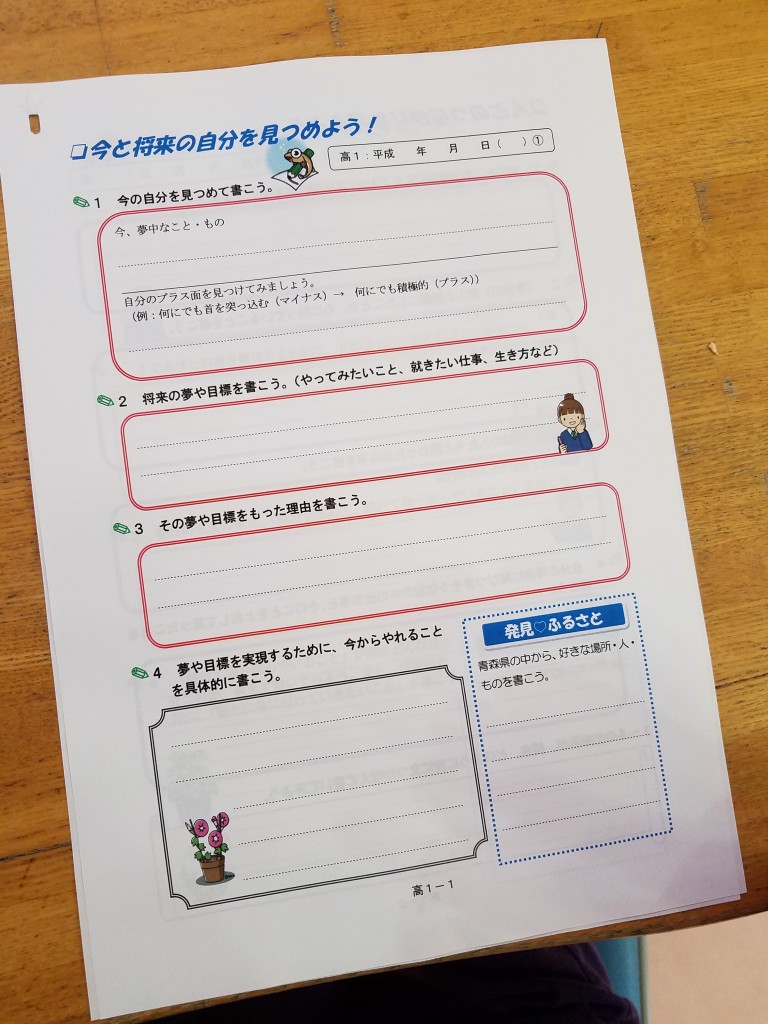 ❏今と将来の自分を見つめよう！
高１：平成　　年　　月　　日（　　）①
1　今の自分を見つめて書こう。
今、夢中なこと・もの
自分のプラス面を見つけてみましょう。
（例：何にでも首を突っ込む（マイナス）→　何にでも積極的（プラス））
2　将来の夢や目標を書こう。（やってみたいこと、就きたい仕事、生き方など）
3　その夢や目標をもった理由を書こう。
4　夢や目標を実現するために、今からやれること
を具体的に書こう。
発見♡ふるさと
青森県の中から、好きな場所・人・
ものを書こう。
高１－１